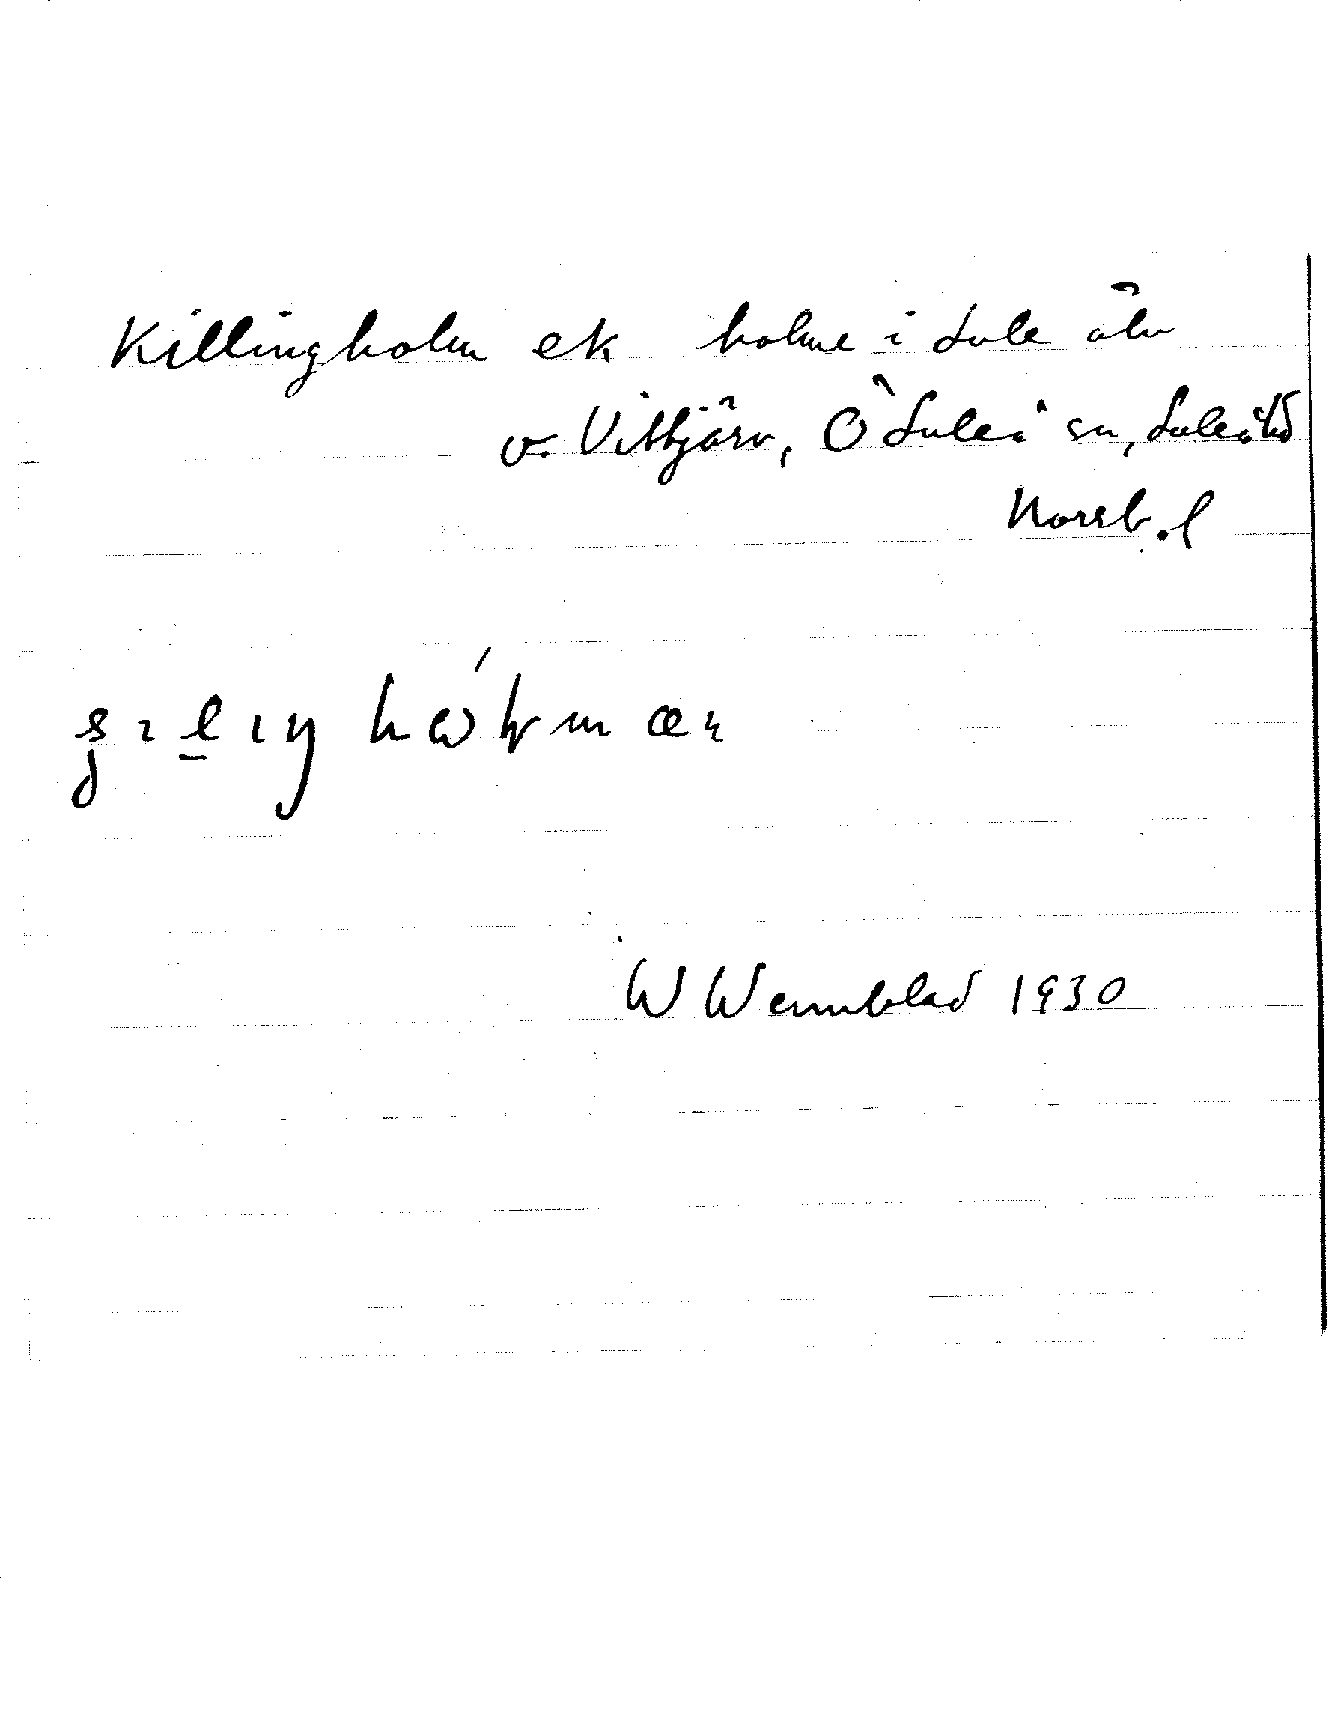 Killingholm ek holme i Lule älv
v. Vittjärv, Ö Luleå sn, Luleå tld
Norrb. l
W Wennblad 1930